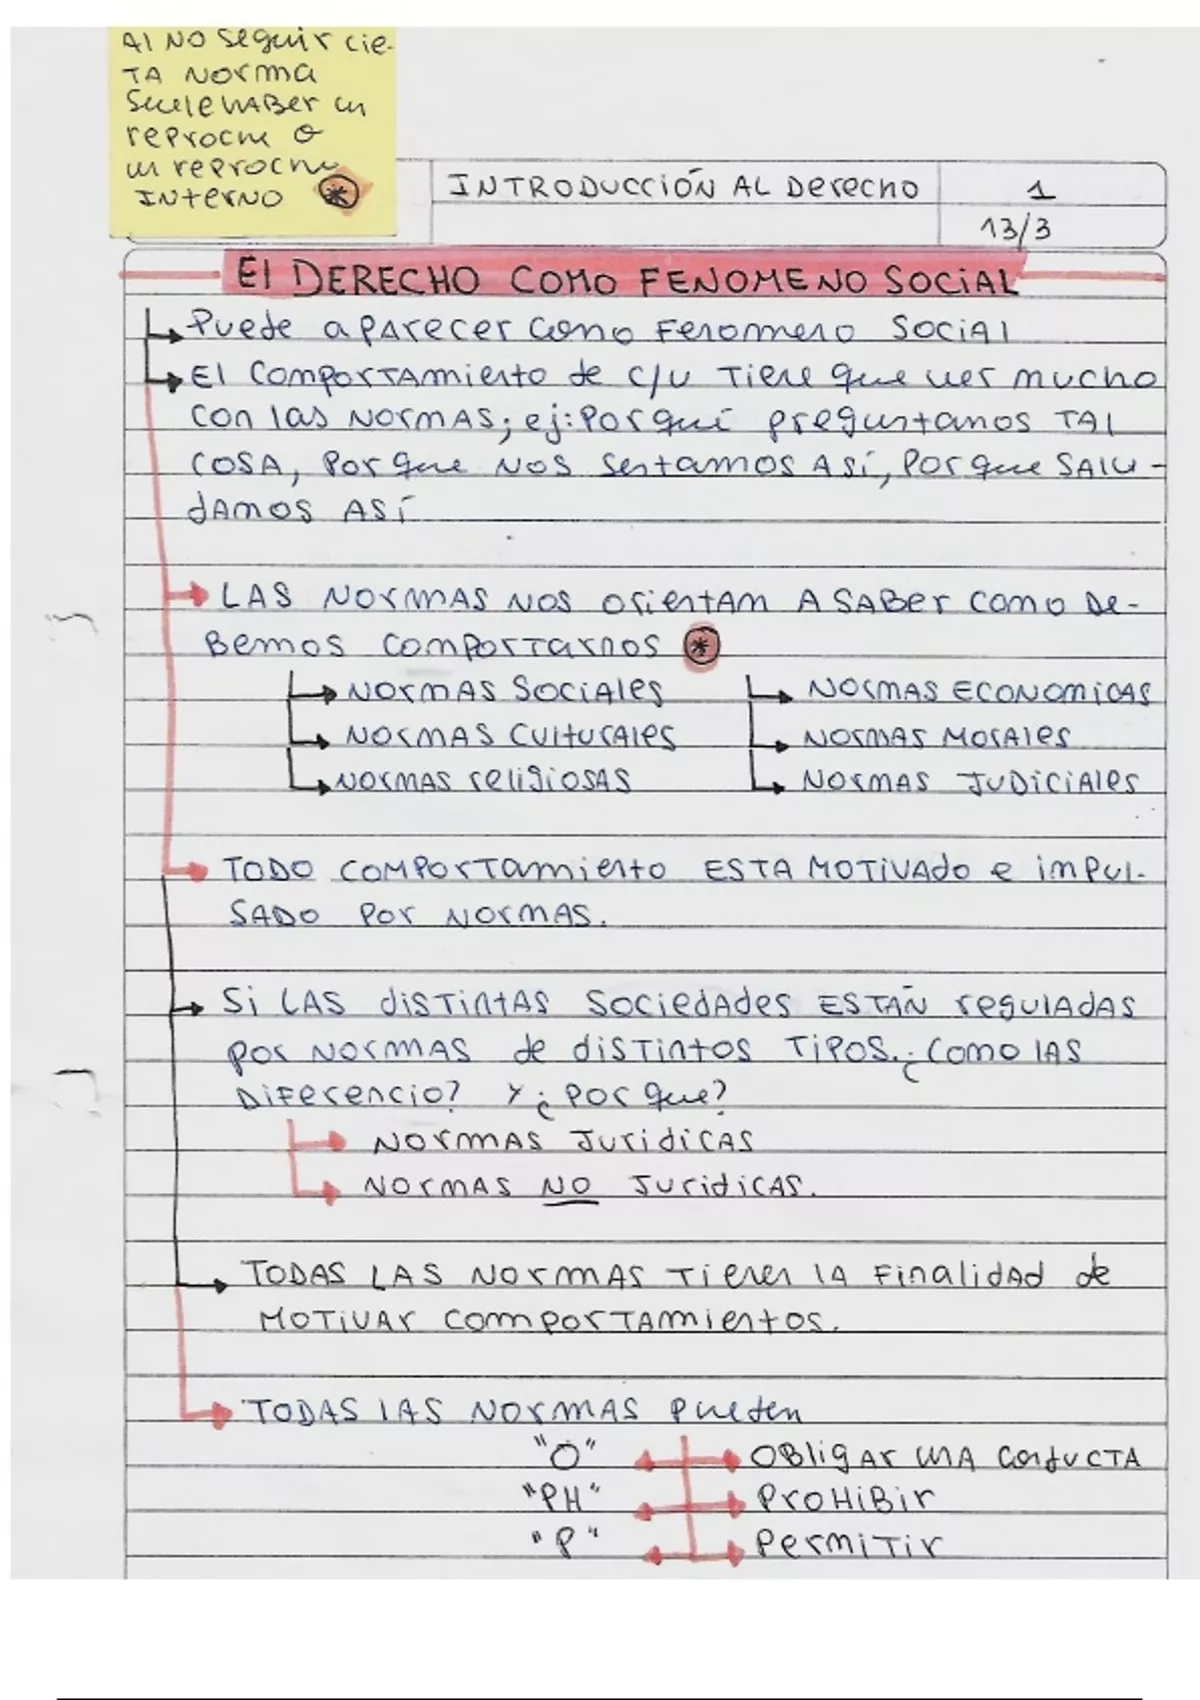 Al NO seguir cie-
TA NORMA
Suele HABER un
reproche o
un reproche
INTERNO *
INTRODUCCIÓN AL Derecho
1
13/3
El DERECHO COMO FENOMENO SOCIAL
Puede aparecer como Fenomeno social
El comportamiento de c/u tiene que ver mucho
con las normas; ej: Por qué preguntamos TAl
cosa, Por que nos sentamos así, Por que salu-
damos así
LAS NORMAS NOS orientan A SABer como de-
Bemos comportarnos *
NORMAS Sociales
NORMAS ECONOMICAS
NORMAS Culturales
NORMAS Morales
NORMAS religiosas
NORMAS JUDICIAles
TODO COMPORTamiento ESTA MOTIVADO e impul-
SADO Por NORMAS.
Si LAS distintas Sociedades ESTÁN reguladas
por NORMAS de distintos TIPOS. ¿Como las
Diferencio? Y ¿Por que?
NORMAS Juridicas
NORMAS NO Juridicas.
TODAS LAS NORMAS Tienen la Finalidad de
MOTIVAR comportamientos.
TODAS LAS NORMAS Pueden
"O" OBligar una conducta
"PH" PROHIBir
"P" Permitir